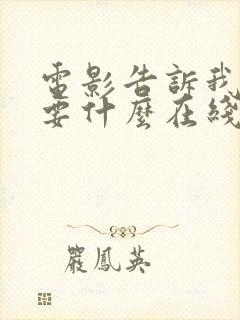 電影告訴我
要什麼在綫
嚴鳳英